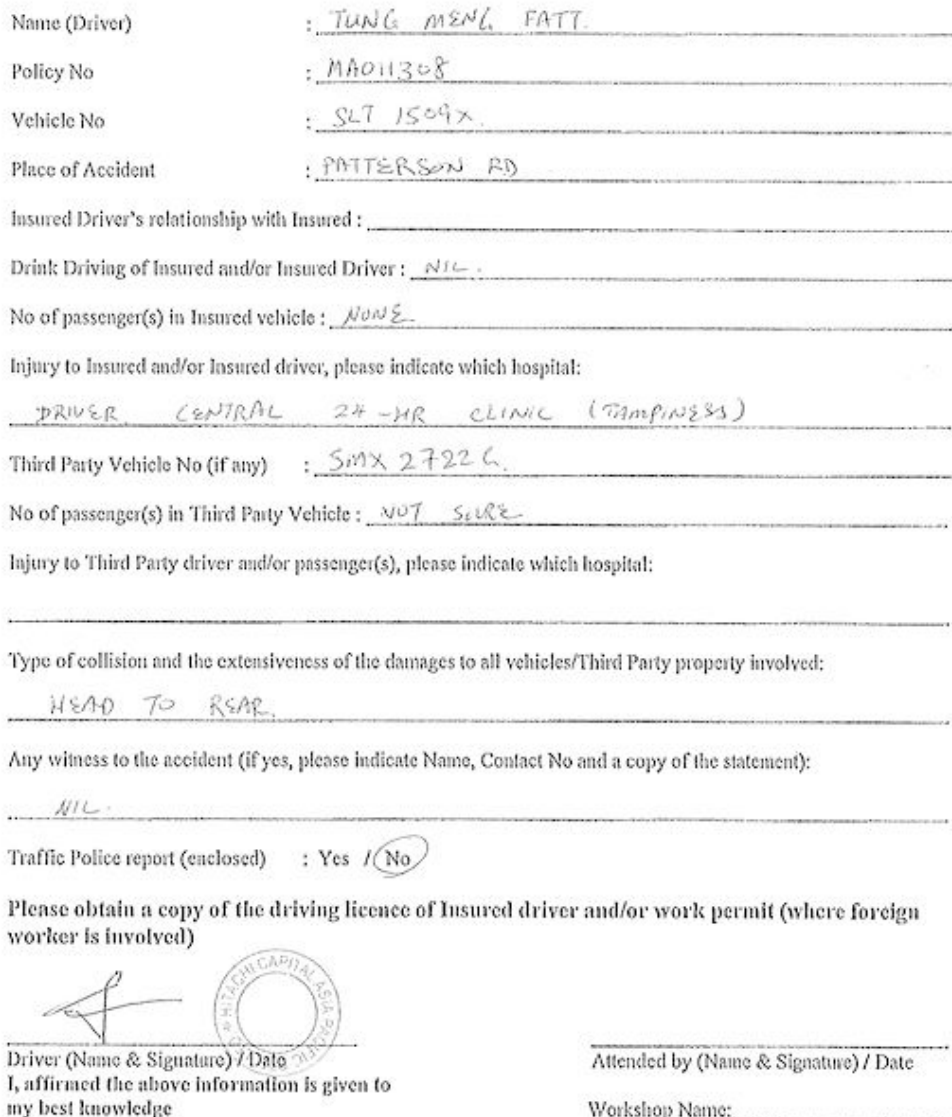 Name (Driver) : TUNG MENG FATT.
Policy No : MA011308
Vehicle No : SLT 1509X.
Place of Accident : PATTERSON RD
Insured Driver's relationship with Insured :
Drink Driving of Insured and/or Insured Driver : NIL.
No of passenger(s) in Insured vehicle : NONE
Injury to Insured and/or Insured driver, please indicate which hospital:
DRIVER CENTRAL 24-HR CLINIC (TAMPINESS)
Third Party Vehicle No (if any) : SMX 2722G.
No of passenger(s) in Third Party Vehicle : NOT SURE
Injury to Third Party driver and/or passenger(s), please indicate which hospital:
Type of collision and the extensiveness of the damages to all vehicles/Third Party property involved:
HEAD TO REAR.
Any witness to the accident (if yes, please indicate Name, Contact No and a copy of the statement):
NIL.
Traffic Police report (enclosed) : Yes / No
Please obtain a copy of the driving licence of Insured driver and/or work permit (where foreign
worker is involved)
HITACHI CAPITAL ASIA PACIFIC
Driver (Name & Signature) / Date
Attended by (Name & Signature) / Date
I, affirmed the above information is given to
my best knowledge
Workshop Name: